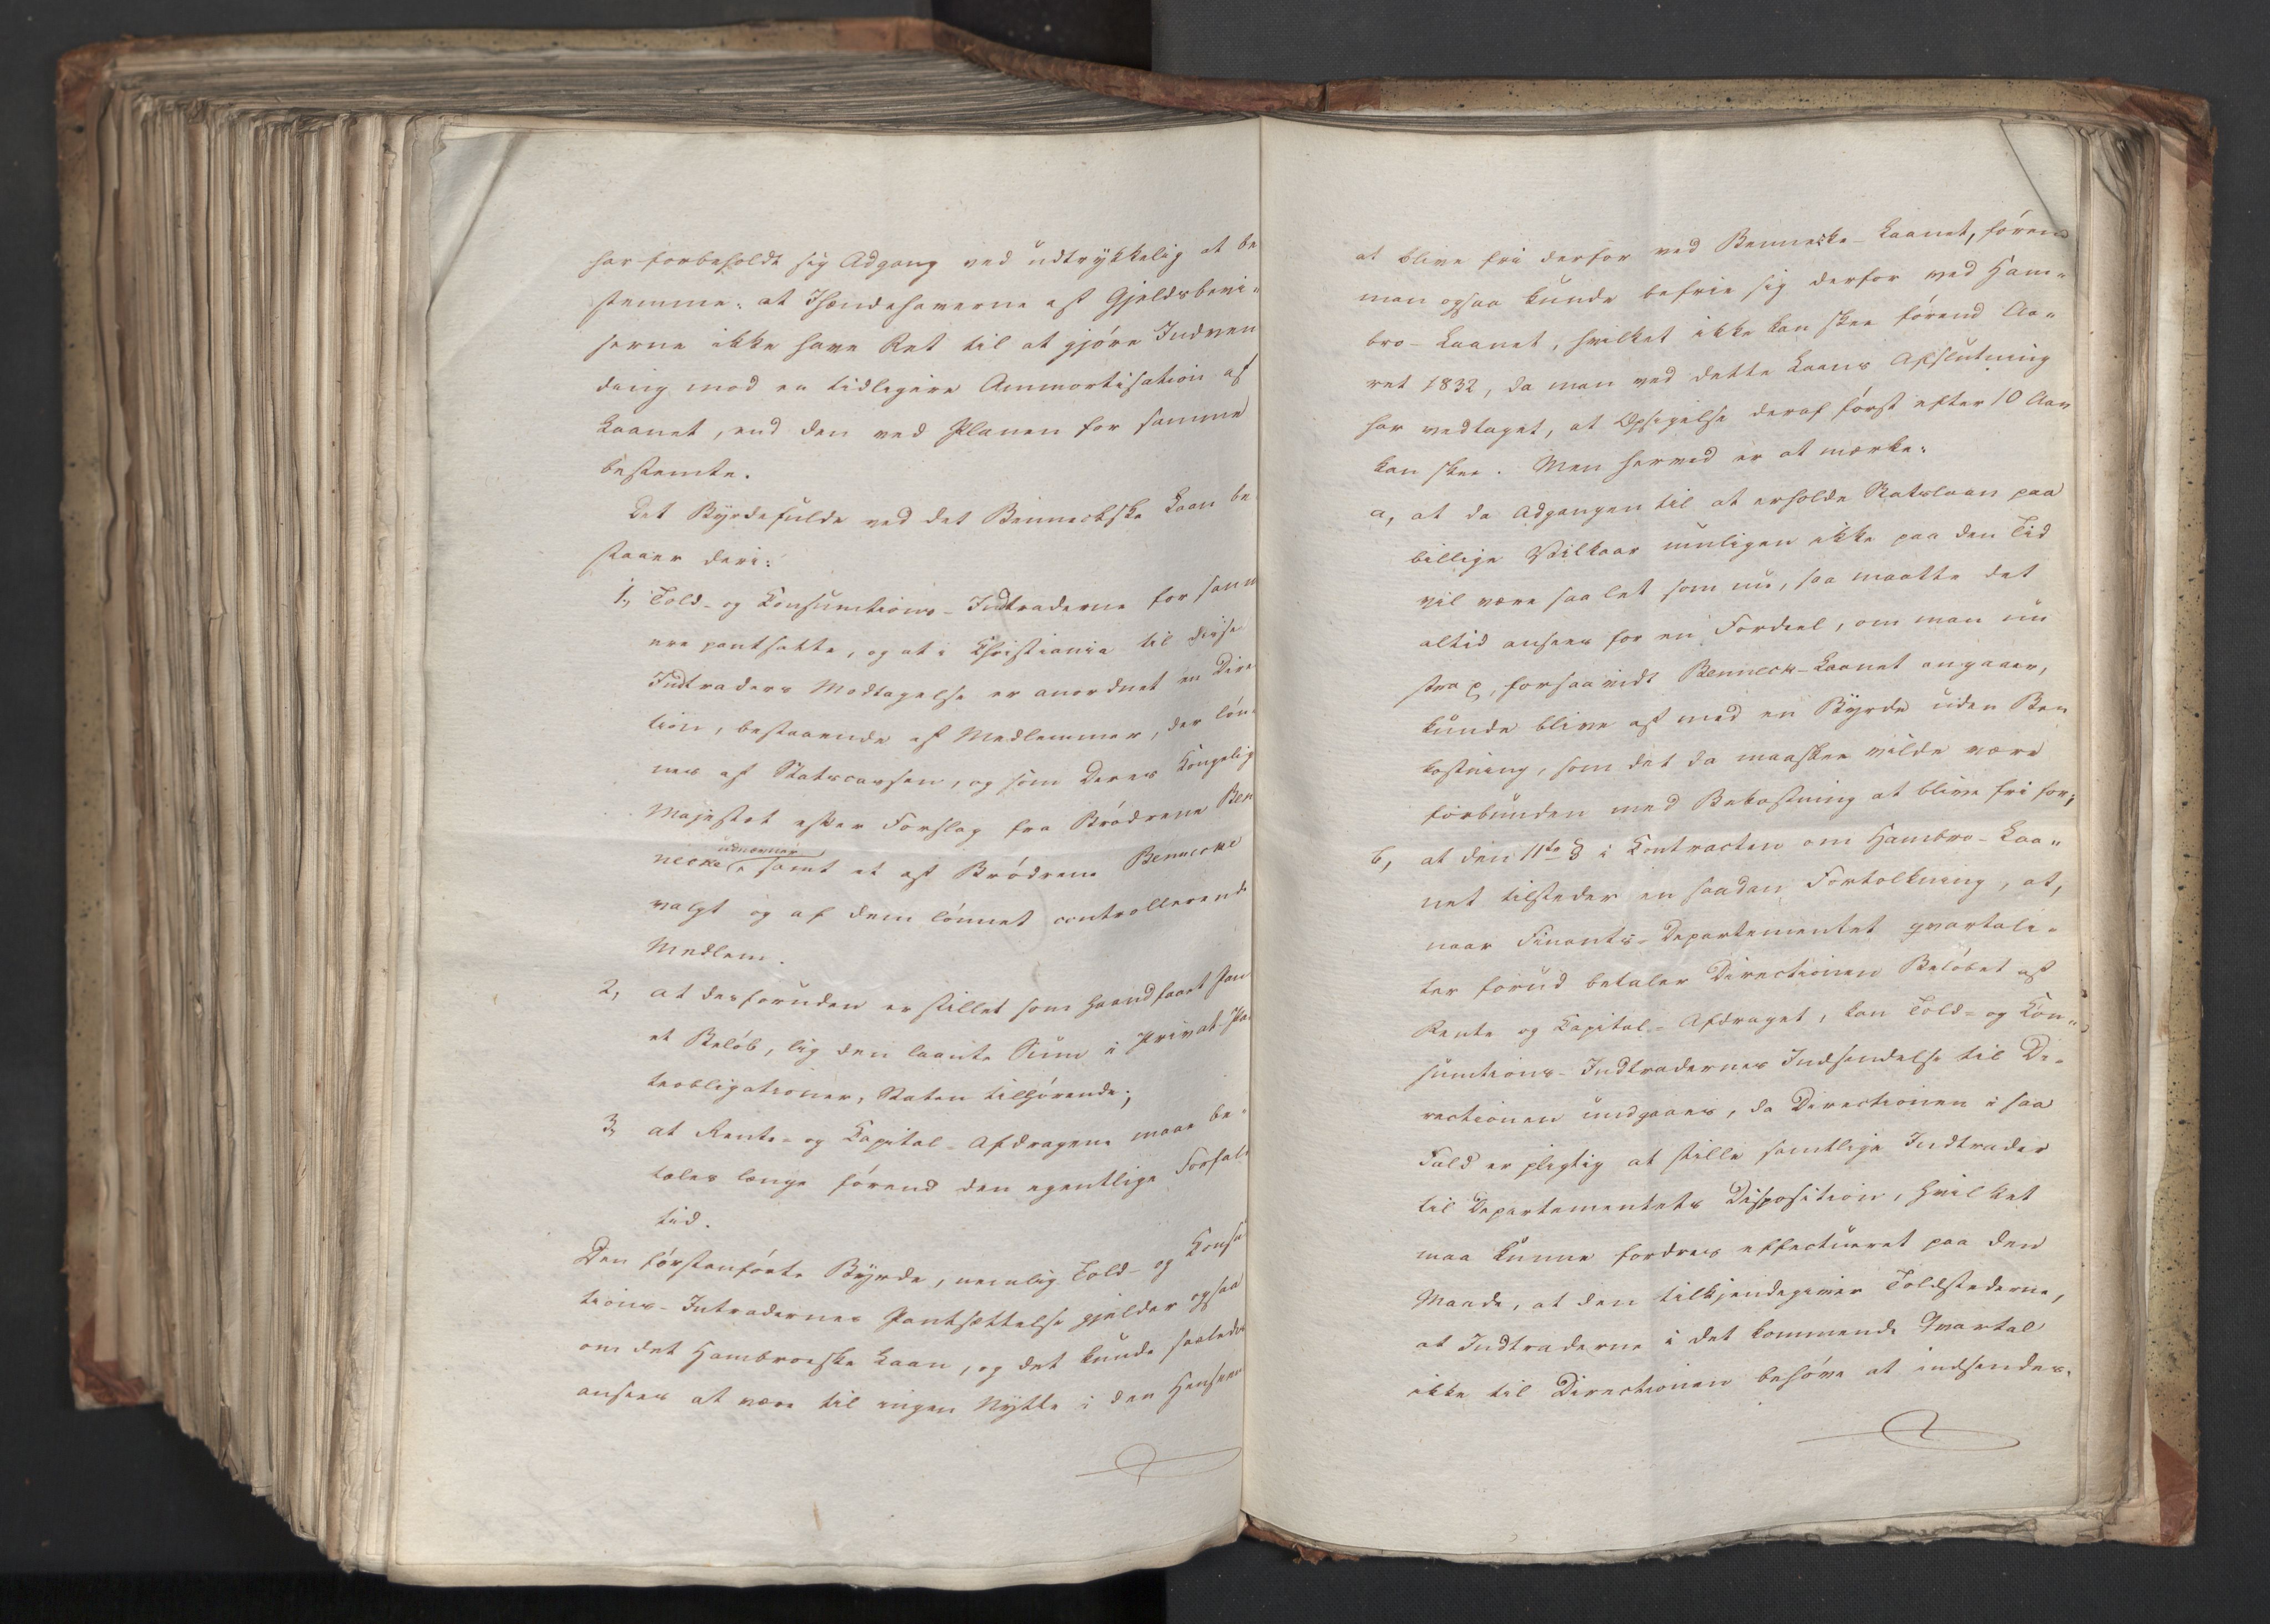 har forbeholdt sig Adgang ved udtrykkelig at be
stemme: at Ihændehaverne af Gjeldsbevi-
serne ikke have Ret til at gjöre Indven
ding mod en tidligere Ammortisation af
Laanet, end den ved Planen for samme
bestemte.
Det Byrdefulde ved det Benneckske Laan be
staaer deri:
1, Told- og Consumtions-Indtraderne for samm
ere pantsatte, og at i Christiania til disse
Indtraders Modtagelse er anordnet en Dire
tion, bestaaende af Medlemmer, der lön-
nes af Statscassen, og som Deres Kongelig
Majestet efter Forslag fra Brödrene Ben
necke udnævner, samt et af Brödrene Bennecke
valgt og af dem lönnet controllerende
Medlem.
2, at desforuden er stillet som haandfaaet Pan
et Belöb, lig den laante Sum i Privat-Pa
teobligationer, Staten tilhörende;
3, at Rente- og Capital-Afdragene maae be-
tales længe förend den egentlige Forfald
tid.
Den förstanförte Byrde, nemlig Told- og Consu
tions-Intradernes Pantsættelse gjelder ogsaa
om det Hambroeske Laan, og det kunde saalede
ansees at være til ingen Nytte i den Henseen
at blive fri derfor ved Bennecke-Laanet, förend
man ogsaa kunde befrie sig derfor ved Ham-
bro-Laanet, hvilket ikke kan skee förend Aa-
ret 1832, da man ved dette Laans Afslutning
har vedtaget, at Opsigelse deraf först efter 10 Aar
kan skee. Men herved er at mærke:
a, at da Adgangen til at erholde Statslaan paa
billige Vilkaar muligen ikke paa den Tid
vil være saa let som nu, saa maatte det
altid ansees for en Fordeel, om man nu
strax, forsaavidt Benneck-Laanet angaaer,
kunde blive af med en Byrde uden Be
kostning, som det da maaskee vilde være
forbunden med Bekostning at blive fri for;
b, at den 11te § i Contracten om Hambro-Laa-
net tilsteder en saadan Fortolkning, at,
naar Finants-Departementet qvartali-
ter forud betaler Directionen Belöbet af
Rente og Capital-Afdraget, kan Told- og Con-
sumtions-Indtradernes Indsendelse til Di-
rectionen undgaaes, da Directionen i saa
Fald er pligtig at stille samtlige Indtrader
til Departementets Disposition, hvilket
maa kunne fordres effectueret paa den
Maade, at den tilkjendegiver Toldstederne,
at Indtraderne i det kommende Qvartal
ikke til Directionen behöve at indsendes.